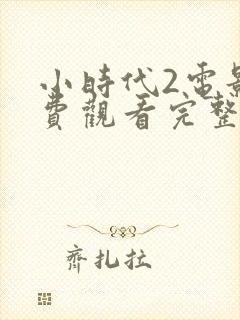 小時代2電影
費觀看完整
齊扎拉